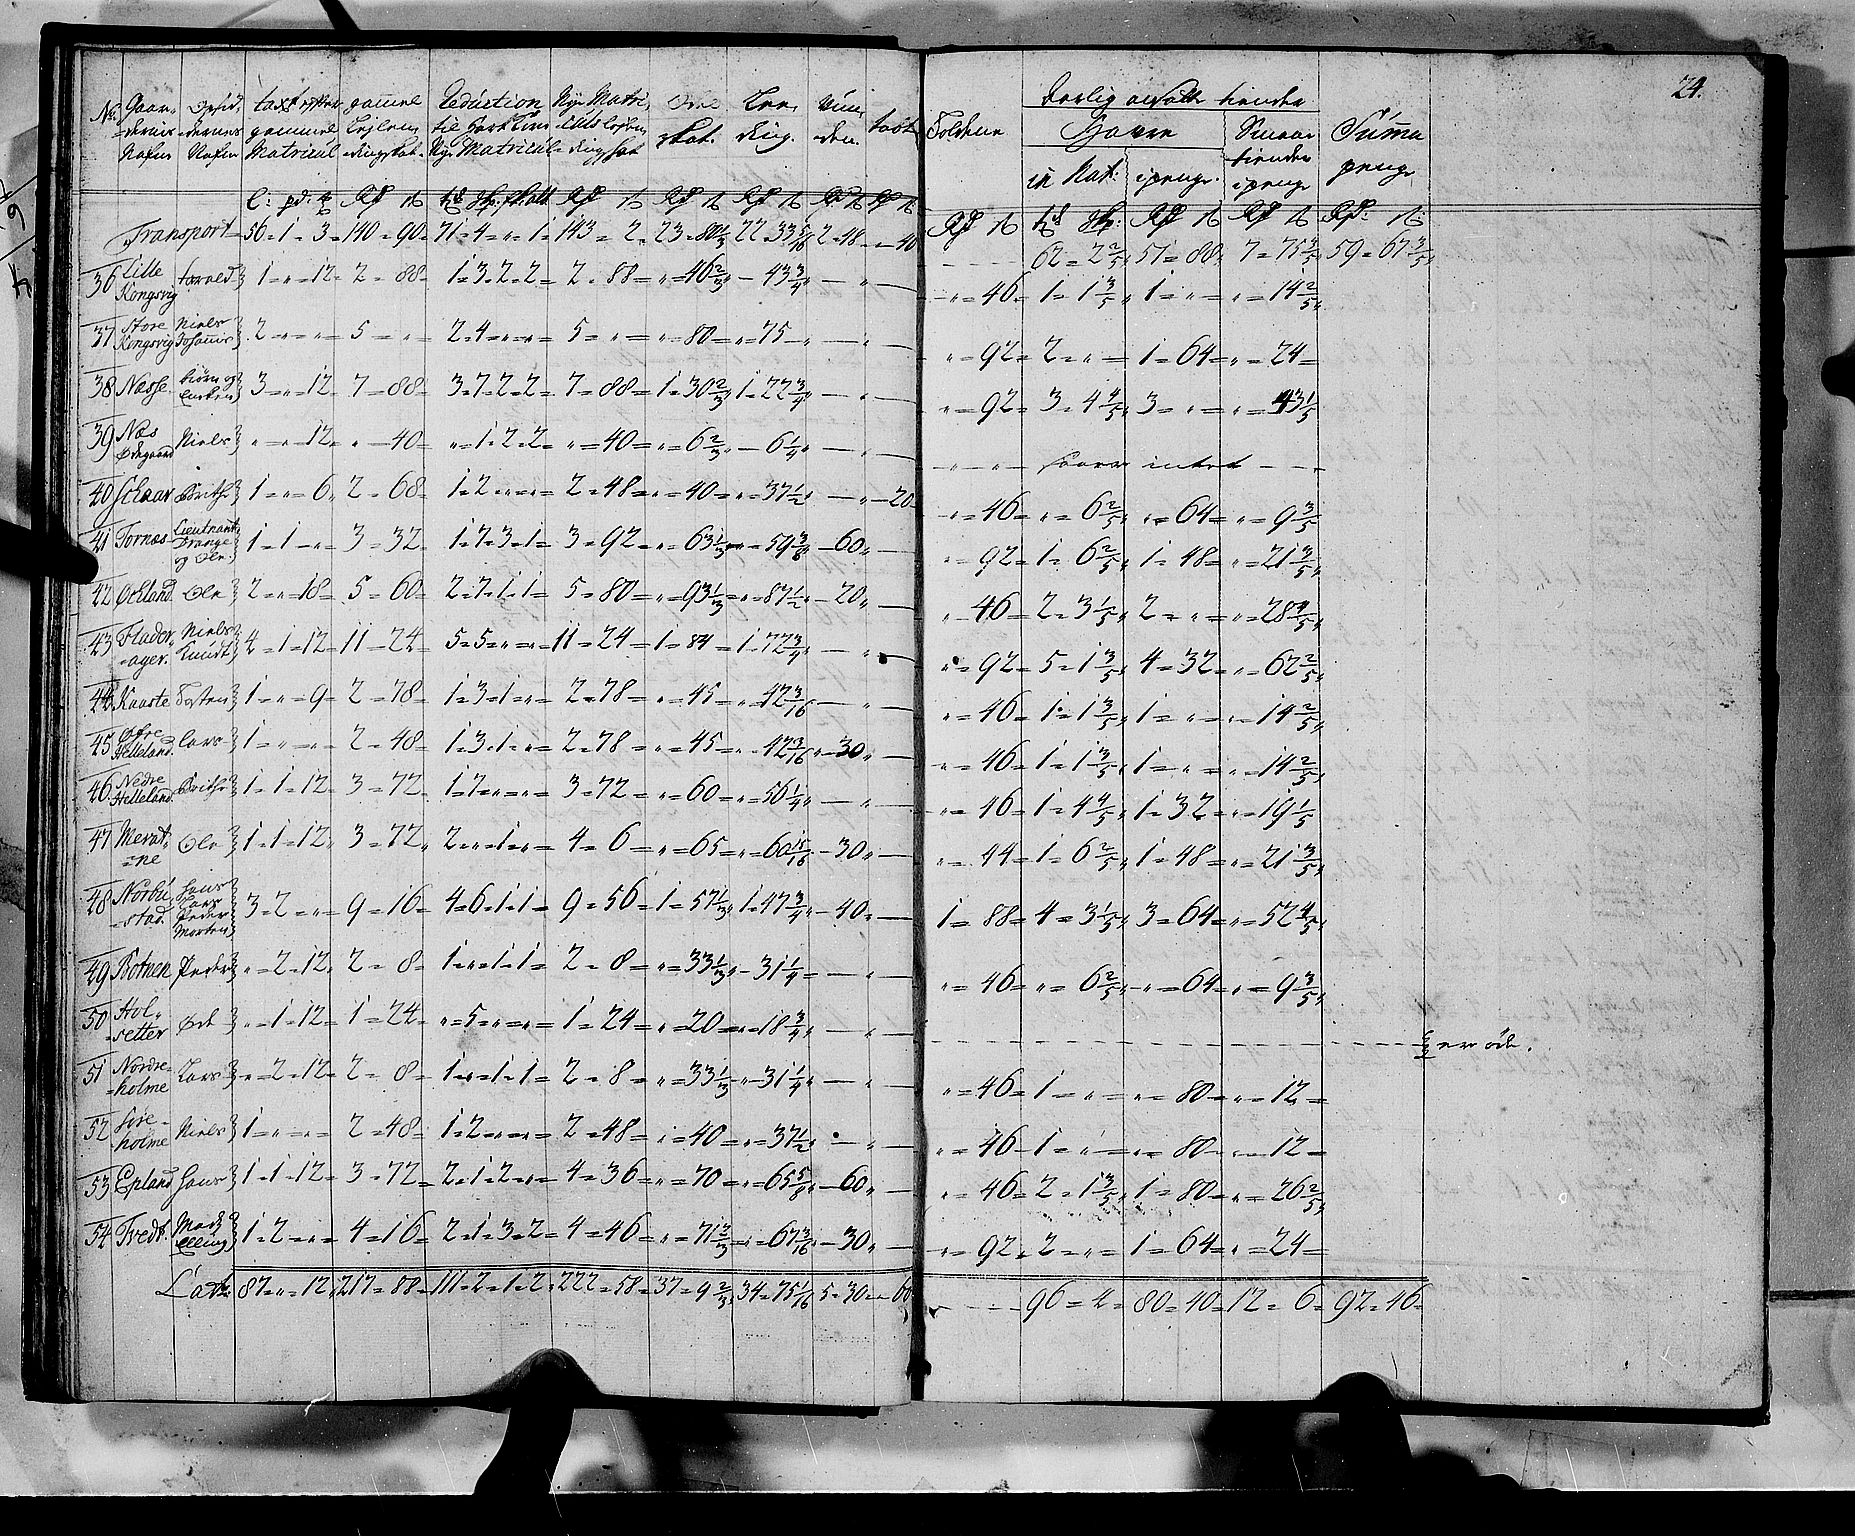 24.
No: Gaar= dernes Nafne
Opsid= dernes Nafne
taxt efter gammel Matricul
gammel
Reduction til Hart Korn Nye Matricul
Nye Matri
Skat.
Leeding.
tiender
Summa penge
in Nat: i penge
Smaae tiender i penge
Transport 56 = 1 = 3 = 140 = 90 = 71 = 4 = „ = 1 = 143 = 2 = 23 = 80 1/3 22 = 33 5/16 2 = 48 = „ = 40 62 = 2 2/5 51 = 88 7 = 75 3/5 59 = 67 3/5
36 Lille Kongsvig 1 = „ = 12 = 2 = 88 = 1 = 3 = 2 = 2 = 2 = 88 = „ = 46 2/3 „ = 43 3/4 „ = 46 = 1 = 1 3/5 1 = „ = „ = 14 2/5
37 Store Kongsvig Niels Johannis 2 = „ = „ 5 = „ 2 = 4 = „ = „ 5 = „ „ = 80 = „ = 75 „ = 92 = 2 = „ = 1 = 64 = „ = 24 =
38 Næsse 3 = „ = 12 = 7 = 88 = 3 = 7 = 2 = 2 = 7 = 88 = 1 = 30 2/3 1 = 22 3/4 „ = 92 = 3 = 4 4/5 3 = „ = „ = 43 1/5
39 Næs Ødegaard Niels „ = „ = 12 = „ = 40 = „ = 1 = 2 = 2 „ = 40 = „ = 6 2/3 „ = 6 1/4 „ = „ = svarer intet
40 Schaar Brithe 1 = „ = 6 = 2 = 68 = 1 = 2 = „ = „ = 2 = 48 = „ = 40 = „ = 37 1/2 „ = 20 „ = 46 = „ = 6 2/5 „ = 64 = „ = 9 3/5
41 Tornæs Lieutnant Prange og Ole 1 = 1 = „ = 3 = 32 = 1 = 7 = 3 = 1 = 3 = 92 = „ = 63 1/3 „ = 59 3/8 = 60 „ = 92 = 1 = 6 2/5 1 = 48 = „ = 21 3/5
42 Ole 2 = „ = 18 = 5 = 60 = 2 = 7 = 1 = 1 = 5 = 80 = „ = 93 1/3 „ = 87 1/2 = 20 „ = 46 = 2 = 3 1/5 2 = „ = „ = 28 4/5
43 Flader= ager Niels Knudt 4 = 1 = 12 = 11 = 24 = 5 = 5 = „ = „ = 11 = 24 = 1 = 84 = 1 = 72 3/4 „ = 92 = 5 = 1 3/5 4 = 32 = „ = 62 2/5
44 Kaarte 1 = „ = 9 = 2 = 78 = 1 = 3 = 1 = „ = 2 = 78 = „ = 45 = „ = 42 3/16 „ = 46 = 1 = 1 3/5 1 = „ = „ = 14 2/5
45 Øfre Helleland Lars 1 = „ = „ = 2 = 48 = 1 = 3 = 1 = „ = 2 = 78 = „ = 45 = „ = 42 3/16 = 30 „ = 46 = 1 = 1 3/5 1 = „ = „ = 14 2/5
46 Nedre Helleland Brithe 1 = 1 = 12 = 3 = 72 = 1 = 7 = „ = „ = 3 = 72 = „ = 60 = „ = 56 1/4 „ = 46 = 1 = 4 4/5 1 = 32 = „ = 19 1/5
47 Ole 1 = 1 = 12 = 3 = 72 = 2 = „ = 1 = „ = 4 = 6 = „ = 65 = „ = 60 15/16 = 30 „ = 44 = 1 = 6 2/5 1 = 48 = „ = 21 3/5
48 Norbu= stad Hans Lars Peder Morten 3 = 2 = „ = 9 = 16 = 4 = 6 = 1 = 1 = 9 = 56 = 1 = 57 1/3 1 = 47 3/4 = 40 1 = 88 = 4 = 3 1/5 3 = 64 = „ = 52 4/5
49 Botnen Peder „ = 2 = 12 = 2 = 8 = 1 = „ = 1 = 1 = 2 = 8 = „ = 33 1/3 „ = 31 1/4 „ = 46 = „ = 6 2/5 „ = 64 = „ = 9 3/5
50 Hol= setter Øde „ = 1 = 12 = 1 = 24 = „ = 5 = „ = „ = 1 = 24 = „ = 20 = „ = 18 3/4 er öde.
51 Nordre= holme Lars „ = 2 = 12 = 2 = 8 = 1 = „ = 1 = 1 = 2 = 8 = „ = 33 1/3 „ = 31 1/4 „ = 46 = 1 = „ „ = 80 = „ = 12 =
52 Søre= holme Niels 1 = „ = „ = 2 = 48 = 1 = 2 = „ = „ = 2 = 48 = „ = 40 = „ = 37 1/2 „ = 46 = 1 = „ „ = 80 = „ = 12 =
53 Epland Hans 1 = 1 = 12 = 3 = 72 = 2 = 1 = 2 = „ = 4 = 36 = „ = 70 = „ = 65 5/8 = 60 „ = 46 = 2 = 1 3/5 1 = 80 = „ = 26 2/5
54 Tvedt 1 = 2 = „ = 4 = 16 = 2 = 1 = 3 = 2 = 4 = 46 = „ = 71 2/3 „ = 67 3/16 = 30 „ = 92 = 2 = „ = 1 = 64 = „ = 24 =
Lat: 87 = „ = 12 217 = 88 = 111 = 2 = 1 = 2 = 222 = 58 = 37 = 9 2/3 34 = 75 1/16 5 = 30 = „ = 60 96 = 4 = 80 = 40 = 12 = 6 = 92 = 46 =